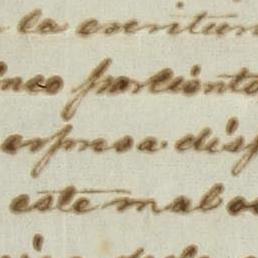 la escritura
inco porciento
espresa disp
este mal o